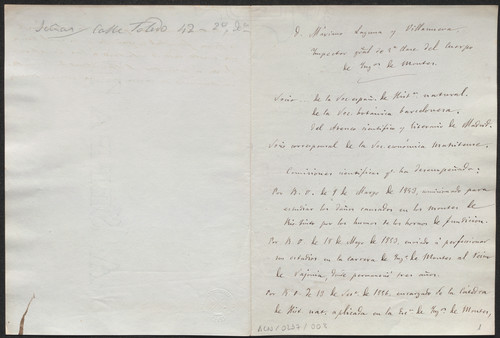 Señas Calle Toledo 42 - 2º, Dª
D. Máximo Laguna y Villanueva.
Inspector gral de 2ª clase del Cuerpo
de Ings de Montes.
Socio de la Soc. españ. de Hist. natural.
de la Soc. botánica barcelonesa.
del Ateneo científico y literario de Madrid.
Socio corresponsal de la Soc. económica Matritense.
Comisiones científicas q. ha desempeñado:
Por R. O. de 9 de Marzo de 1853, comisionado para
estudiar los daños causados en los montes de
Rio tinto por los humos de los hornos de fundicion.
Por R. O. de 18 de Mayo de 1853, enviado á perfeccionar
sus estudios en la carrera de Ings de Montes al Reino
de Sajonia, donde permaneció tres años.
Por R. O. de 19 de de 1856, encargado de la Cátedra
de Hist. nat. aplicada en la Esc. de Ings de Montes,
1